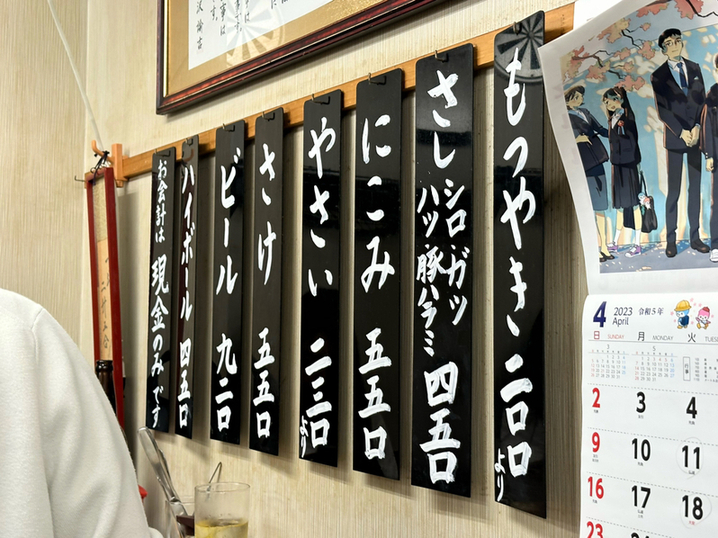 もつやき 二〇〇より
さし シロ・ガツ ハツ・豚ハラミ 四五〇
にこみ 五五〇
やさい 二三〇より
さけ 五五〇
ビール 九二〇
ハイボール 四五〇
お会計は 現金のみです
4 2023 令和5年
April
日 SUNDAY 月 MONDAY 火 TUES
2 3 4
9 10 11
16 17 18
23